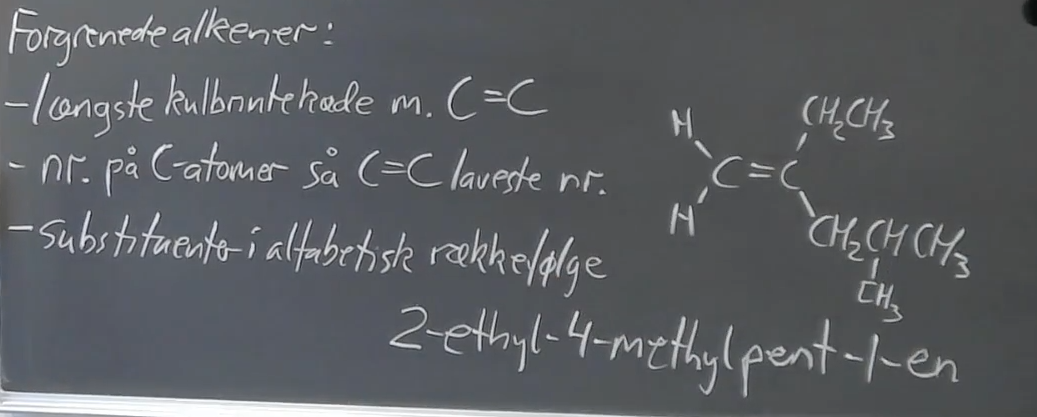 Forgrenede alkener:
- længste kulbrintekæde m. C=C
- nr. på C-atomer så C=C laveste nr.
- substituenter i alfabetisk rækkefølge
H
CH₂CH₃
C=C
H
CH₂CHCH₃
CH₃
2-ethyl-4-methylpent-1-en